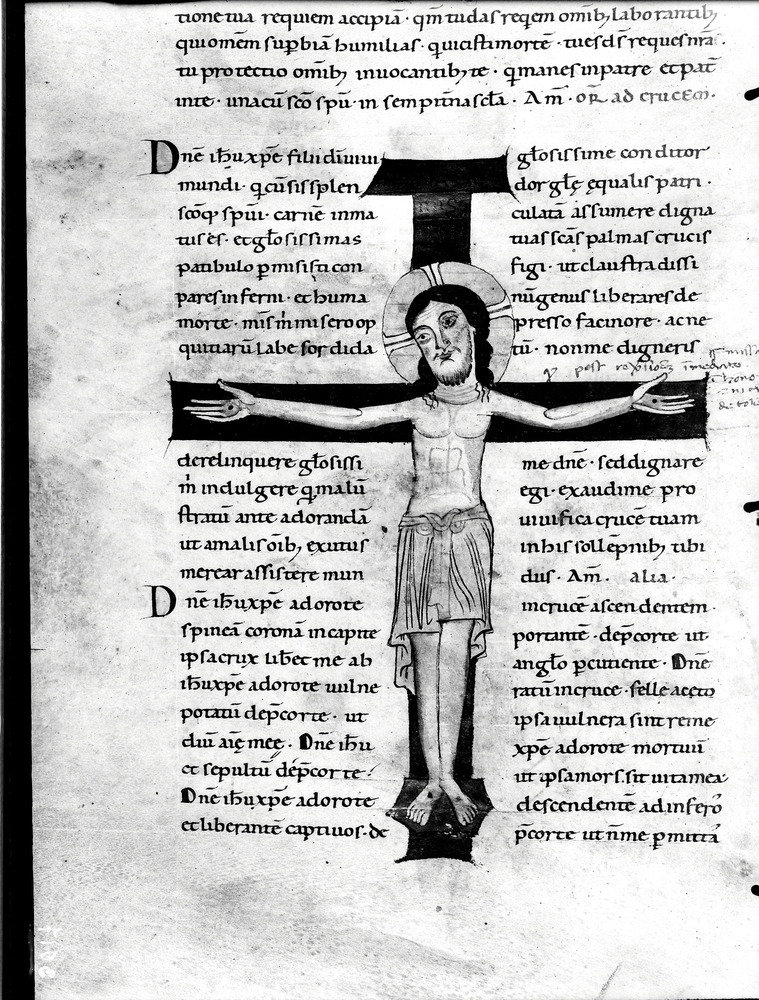 tione tua requiem accipiā · qm̄ tu das reqēm omib; laborantib;
qui omem supbiā humilias · qui cisti mortē · tu es ds̄ requies nr̄a ·
tu protectio omib; inuocantib; te · q manes in patre et pat̄
in te · una cū sc̄o spū · in sempitna sc̄la · Am̄ · or̄ ad crucem ·
Dn̄e ih̄u xpē filii dī uiui gl̄osissime conditor
mundi · q cū sis splen dor gl̄ę ęqualis patri ·
sc̄oq spūi · carnē inma culatā assumere digna
tus es · et gl̄osissimas tuas sc̄as palmas crucis
patibulo pmisisti con figi · ut claustra dissi
pares inferni · et huma nū genus liberares de
morte · mis m̄ misero op presso facinore · ac ne
quitiarū labe sordida tū · non me digneris
derelinquere gl̄osissi me dn̄e · sed dignare
m̄ indulgere q malū egi · exaudi me pro
stratū ante adorandā uiuifica crucē tuam
ut a malis oīb; exutus in his sollēpnib; tibi
merear assistere mun dus · Am̄ · alia ·
Dn̄e ih̄u xpē adoro te in crucē ascendentem ·
spineā coronā in capite portantē · dep̄cor te ut
ipsa crux libet me ab angl̄o pcutiente · Dn̄e
ih̄u xpē adoro te uulne ratū in cruce · felle aceto
potatū dep̄cor te · ut ipsa uulnera sint reme
diū aīę męę · Dn̄e ih̄u xpē adoro te mortuū
et sepultū dep̄cor te · ut ipsa mors sit uita mea
Dn̄e ih̄u xpē adoro te descendentē ad infero
et liberantē captiuos · de p̄cor te ut n̄ me pmittā